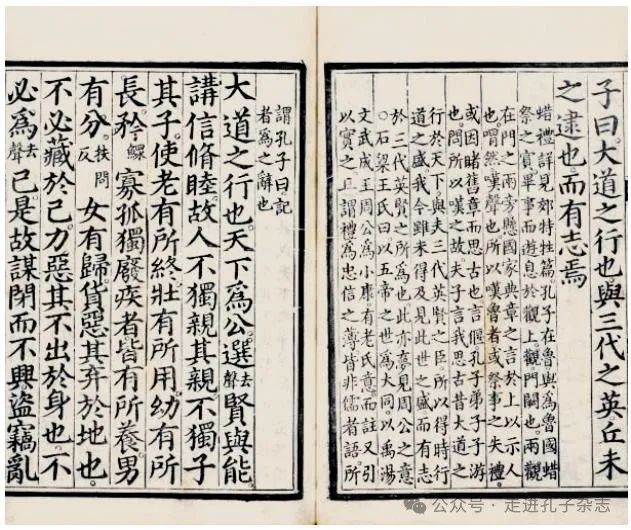 子曰大道之行也與三代之英丘未
之逮也而有志焉
蜡禮詳見郊特牲篇孔子在魯與爲魯國蜡
祭之賓畢事而遊息於觀上觀門闕也兩觀
在門之兩旁懸國家典章之言於上以示人
也喟然嘆聲也所以嘆魯者或祭事之失禮
或因睹舊章而思古也言偃孔子弟子子游
也問所以嘆之故夫子言我思古昔大道之
行於天下與夫三代英賢之臣所以得時行
道之盛我今雖未得及見此世之盛而有志
於三代英賢之所爲也此亦夢見周公之意
○石梁王氏曰以五帝之世爲大同以禹湯
文武成王周公爲小康有老氏意而註又引
以實之且謂禮爲忠信之薄皆非儒者語所
謂孔子曰記
者爲之辭也
大道之行也天下爲公選去聲賢與能
講信脩睦故人不獨親其親不獨子
其子使老有所終壯有所用幼有所
長矜鰥寡孤獨廢疾者皆有所養男
有分扶問反女有歸貨惡其弃於地也
不必藏於己力惡其不出於身也不
必爲去聲己是故謀閉而不興盜竊亂
公众号 · 走进孔子杂志